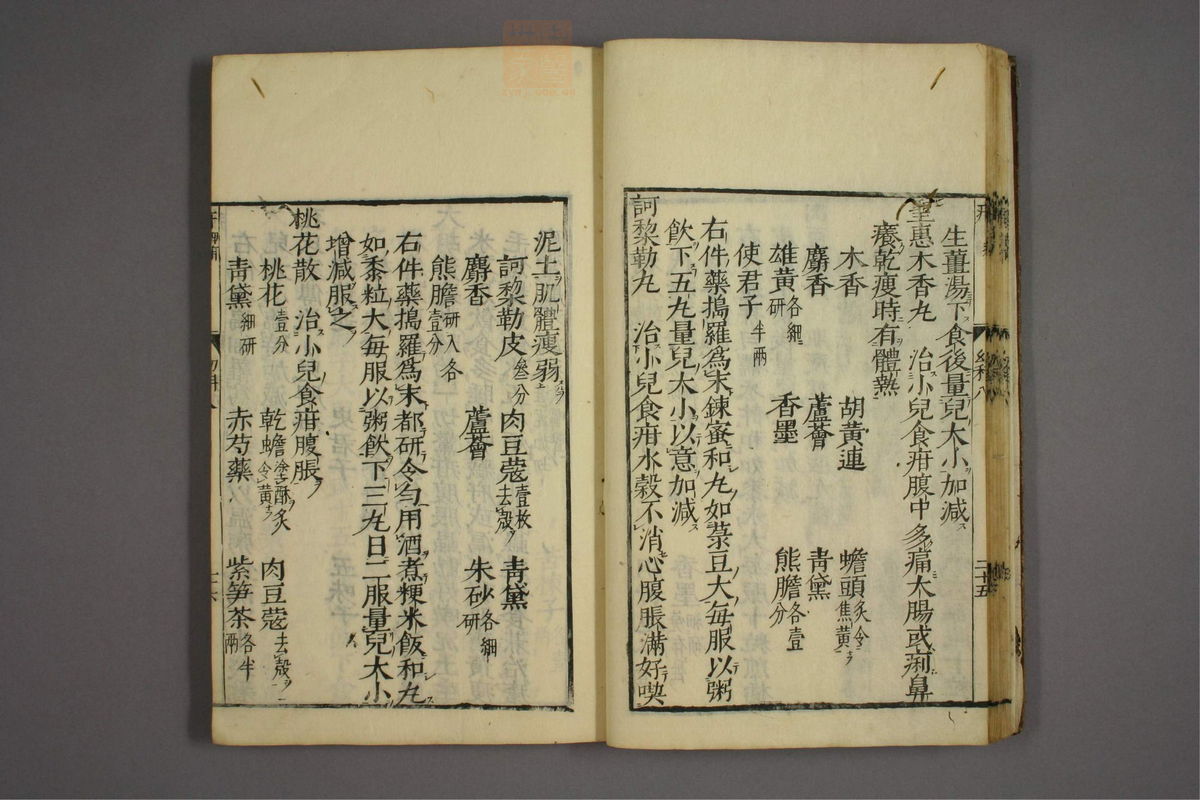 生薑湯下食後量兒大小加減
聖惠木香丸　治小兒食疳腹中多痛大腸或痢鼻
癢乾瘦時有體熱
木香　胡黃連　蟾頭炙令焦黃
麝香　蘆薈　青黛
雄黃各細研　香墨　熊膽各壹分
使君子半兩
右件藥搗羅爲末鍊蜜和丸如菉豆大每服以粥
飲下五丸量兒大小以意加減
訶黎勒丸　治小兒食疳水穀不消心腹脹滿好喫
泥土肌體瘦弱
訶黎勒皮叁分　肉豆蔻壹枚去殼　青黛
麝香　蘆薈　朱砂各細研
熊膽研入各壹分
右件藥搗羅爲末都研令勻用酒煮粳米飯和丸
如黍粒大每服以粥飲下三丸日二服量兒大小
增減服之
桃花散　治小兒食疳腹脹
桃花壹分　乾蟾塗酥炙令黃　肉豆蔻去殼
青黛細研　赤芍藥　紫笋茶各半兩